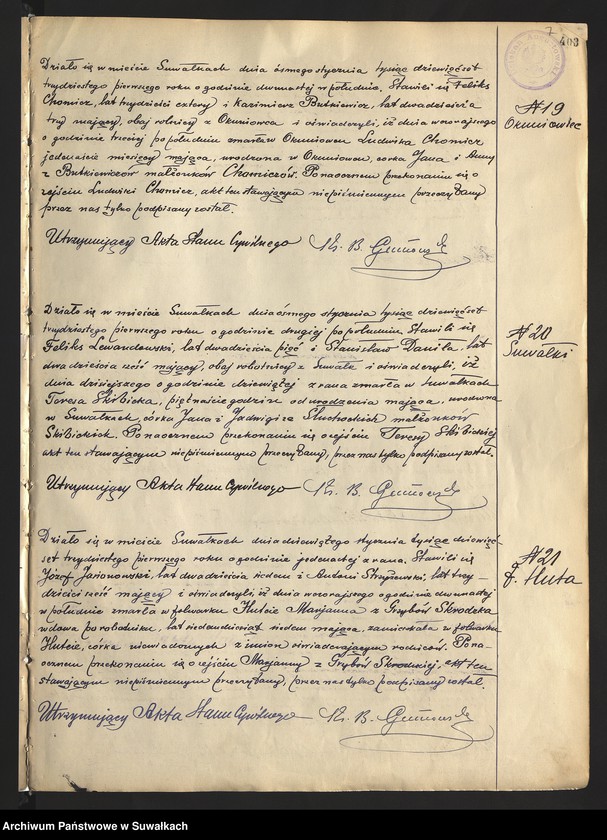 7
403
Działo się w mieście Suwałkach dnia ósmego stycznia tysiąc dziewięćset
trzydziestego pierwszego roku o godzinie dwunastej w południe. Stawili się Feliks
Chomicz, lat trzydzieści cztery i Kazimierz Butkiewicz, lat dwadzieścia
trzy mający, obaj rolnicy z Okuniowca i oświadczyli, iż dnia wczorajszego
o godzinie trzeciej po południu zmarła w Okuniowcu Ludwika Chomicz
jedenaście miesięcy mająca, urodzona w Okuniowcu, córka Jana i Anny
z Butkiewiczów małżonków Chomiczów. Po naocznem przekonaniu się o
zejściu Ludwiki Chomicz, akt ten stawającym niepiśmiennym przeczytany
przez nas tylko podpisany został.
Utrzymujący Akta Stanu Cywilnego Ks. B.
№ 19
Okuniowiec
Działo się w mieście Suwałkach dnia ósmego stycznia tysiąc dziewięćset
trzydziestego pierwszego roku o godzinie drugiej po południu. Stawili się
Feliks Lewandowski, lat dwadzieścia pięć i Stanisław Daniła lat
dwadzieścia sześć mający, obaj robotnicy z Suwałk i oświadczyli, iż
dnia dzisiejszego o godzinie dziewiątej z rana zmarła w Suwałkach
Teresa Skibicka, piętnaście godzin od urodzenia mająca, urodzona
w Suwałkach, córka Jana i Jadwigi ze Słuchockich małżonków
Skibickich. Po naocznem przekonaniu się o zejściu Teresy Skibickiej
akt ten stawającym niepiśmiennym przeczytany, przez nas tylko podpisany został.
Utrzymujący Akta Stanu Cywilnego Ks. B.
№ 20
Suwałki
Działo się w mieście Suwałkach dnia dziewiątego stycznia tysiąc dziewięć-
set trzydziestego pierwszego roku o godzinie jedenastej z rana. Stawili się
Józef Jasionowski, lat dwadzieścia siedem i Antoni lat trzy-
dzieści sześć mający i oświadczyli, iż dnia wczorajszego o godzinie dwunastej
w południe zmarła w folwarku Hucie Marjanna z Grzybów Skrodzka
wdowa po rolniku, lat siedemdziesiąt siedem mająca, zamieszkała w folwarku
Hucie, córka niewiadomych z imion oświadczającym rodziców. Po na-
ocznem przekonaniu się o zejściu Marjanny z Grzybów Skrodzkiej, akt ten
stawającym niepiśmiennym przeczytany, przez nas tylko podpisany został.
Utrzymujący Akta Stanu Cywilnego Ks. B.
№ 21
f. Huta
Archiwum Państwowe w Suwałkach